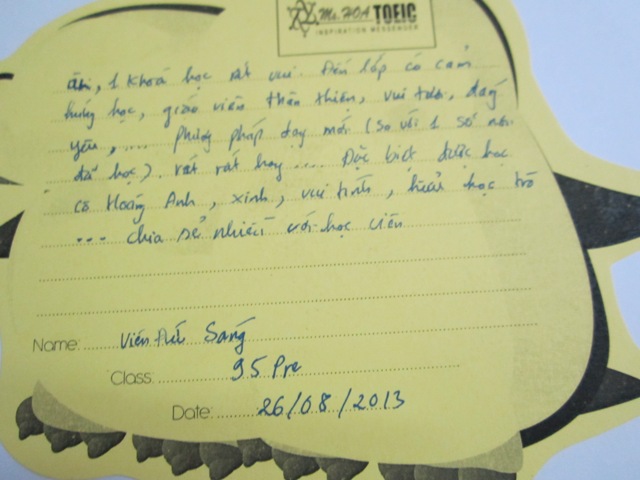 Ms. HOA TOEIC
INSPIRATION MESSENGER
ấn, 1 khoá học rất vui. Đến lớp có cảm
hứng học, giáo viên thân thiện, vui tươi, đáng
yêu, ... phương pháp dạy mới (so với 1 số nơi
đã học). rất rất hay .... Đặc biệt được học
cô Hoàng Anh, xinh, vui tính, học trò
... chia sẻ nhiều với học viên
Name: Viên Sang
Class: 95 Pre
Date: 26/08/2013